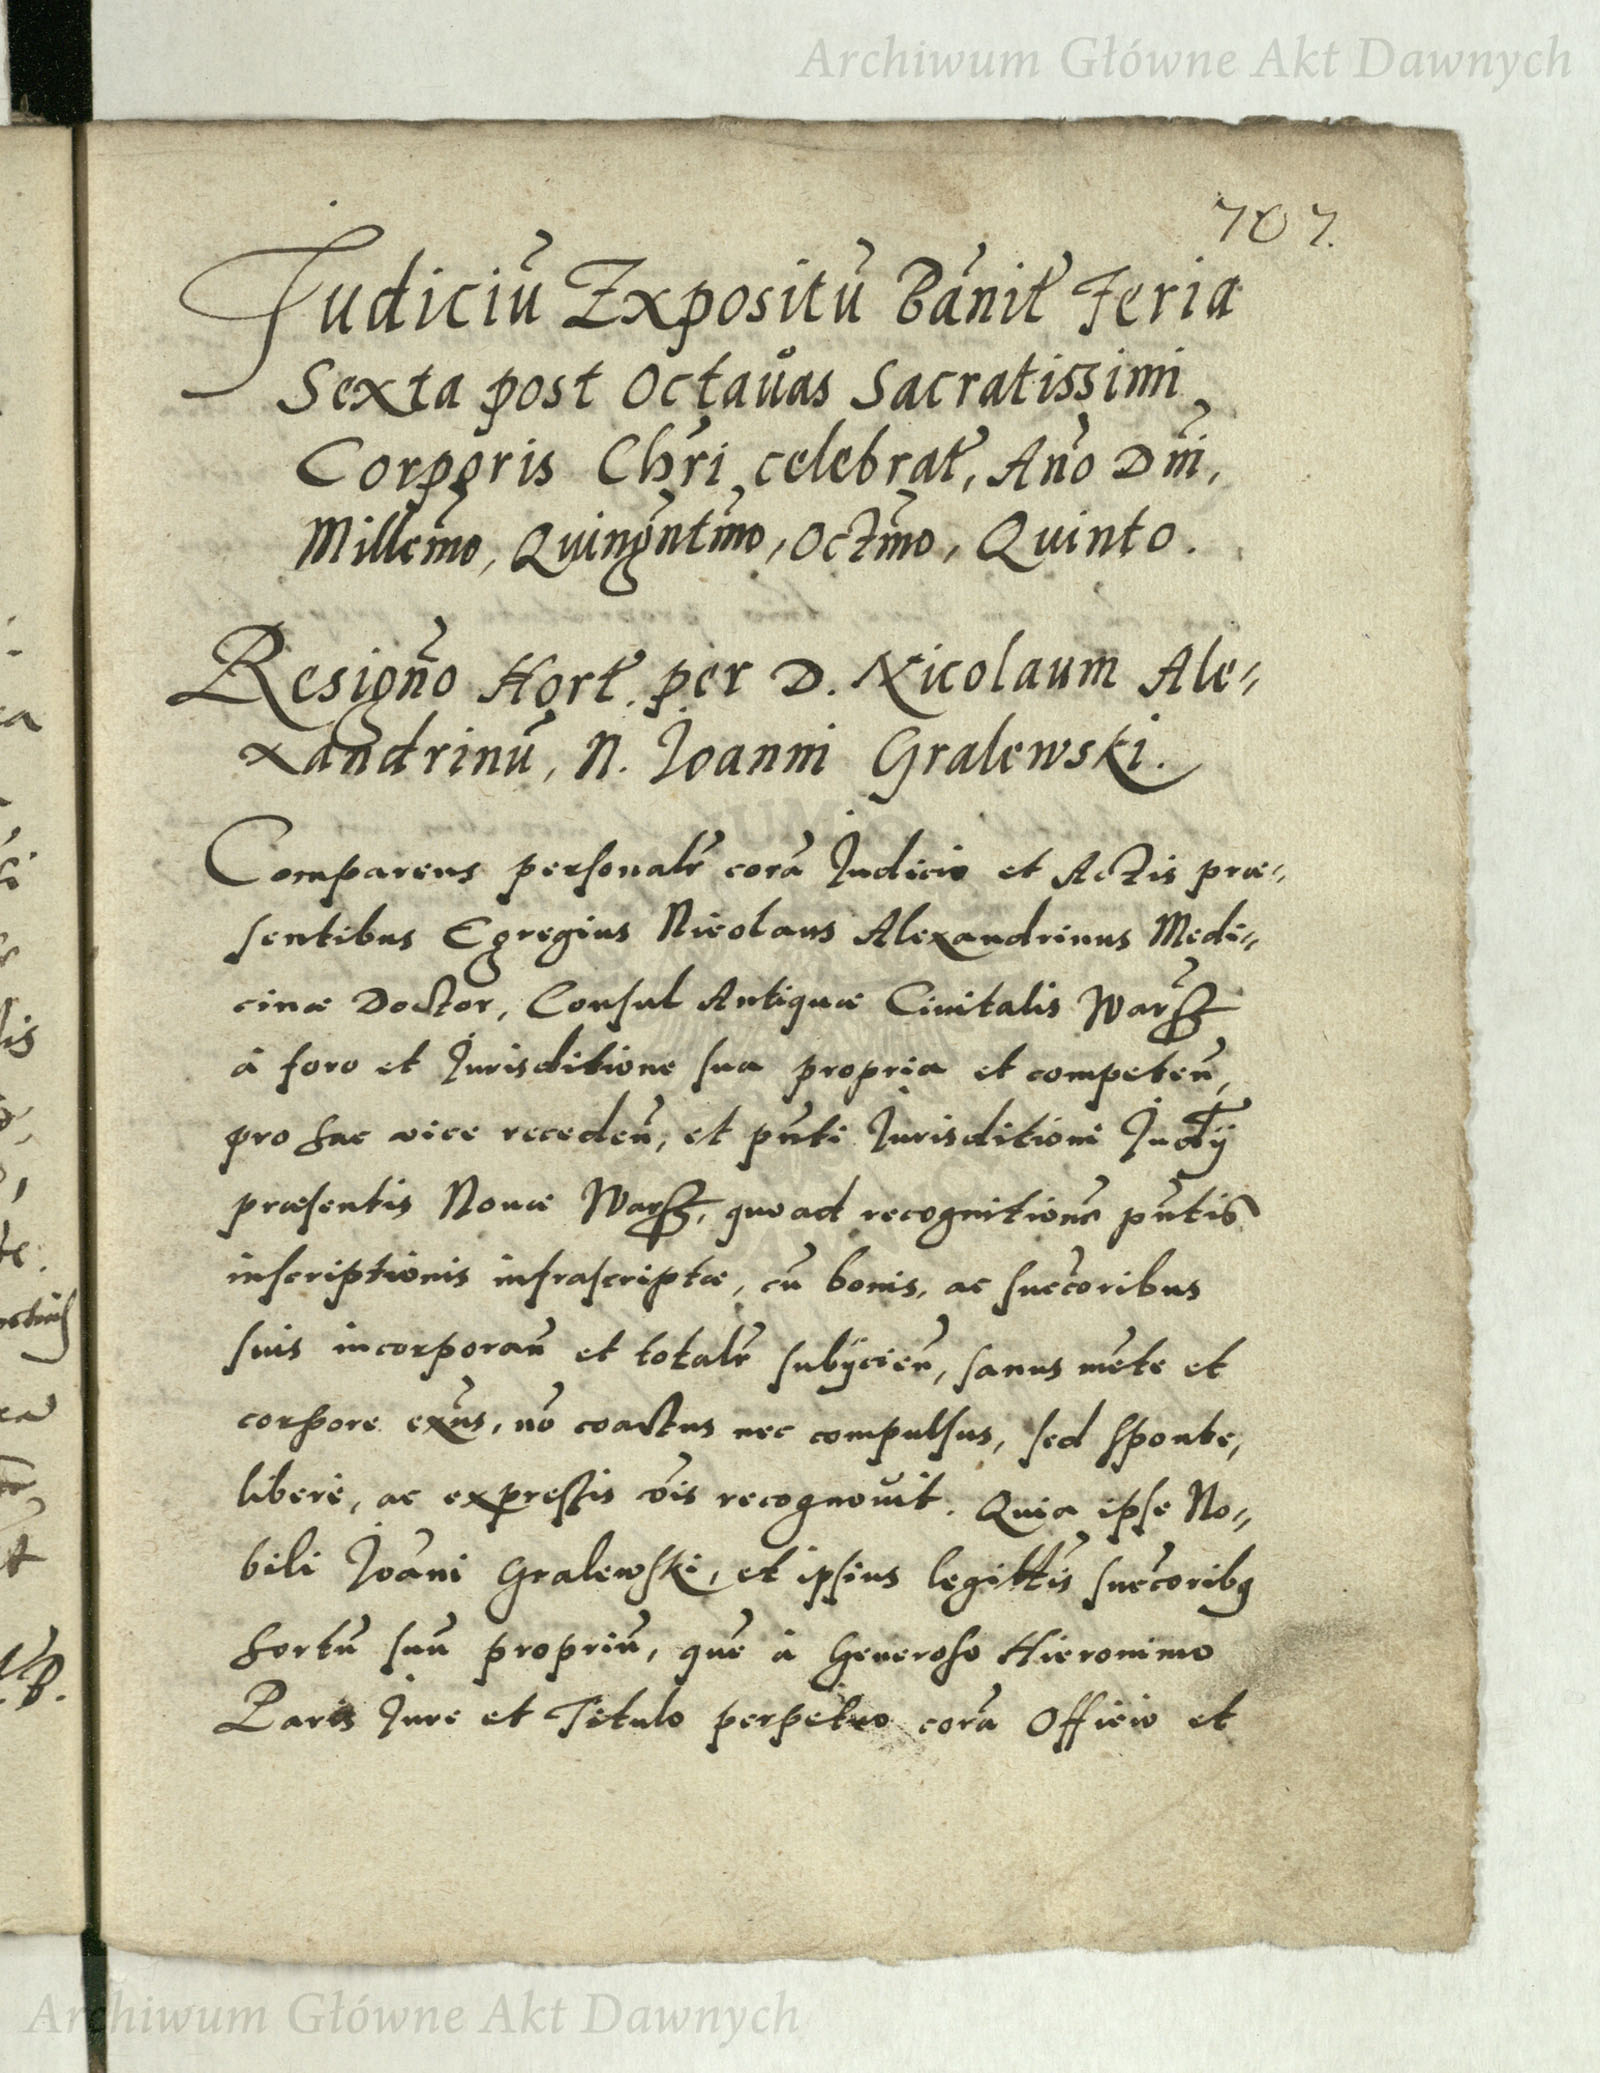 Archiwum Główne Akt Dawnych
707.
Judiciũ Expositũ Bãnit̃ Feria
Sexta post Octaůas Sacratissimi
Corporis Chr̃i celebrat̃, Año Dñi,
Millemõ, Quingñtmõ, Octmõ, Quinto.
Resigño Hort̃. per D. Nicolaum Ale-
xandrinũ, N. Joanni Gralewski.
Comparens personalr̃ corã Judicio et Actis præ-
sentibus Egregius Nicolaus Alexandrinus Medi-
cinæ Doctor, Consul Antiquæ Ciuitatis Warß
à foro et Jurisditione sua propria et competeñ,
pro hac vice recedeñ, et pñti Jurisditioni Judỹ
præsentis Nouæ Warß, quoad recognitionẽ pñtis
inscriptionis infrascriptæ, cũ bonis, ac succ̃oribus
suis incorporañ et totalr̃ subÿcieñ, sanus mẽte et
corpore exñs, nõ coactus nec compulsus, sed sponte,
liberè, ac expressis ṽis recognouit. Quia ipse No-
bili Joãni Gralewski, et ipsius legittĩs succ̃oribꝫ
hortũ suũ propriũ, quẽ à Generoso Hieronimo
Paris Jure et Titulo perpetuo corã Officio et
Archiwum Główne Akt Dawnych